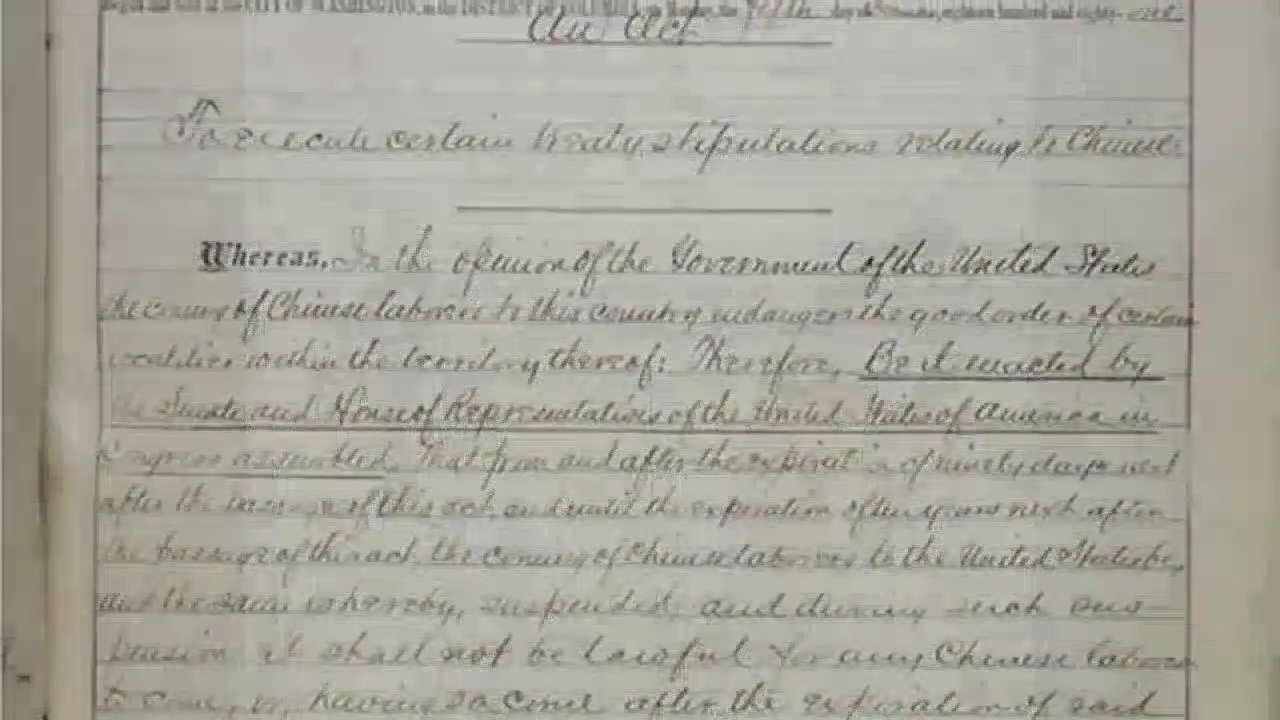 An Act
To execute certain treaty stipulations relating to Chinese.
Whereas, In the opinion of the Government of the United States
the coming of Chinese laborers to this country endangers the good order of certain
localities within the territory thereof: Therefore, Be it enacted by
the Senate and House of Representatives of the United States of America in
Congress assembled, That from and after the expiration of ninety days next
after the passage of this act, and until the expiration of ten years next after
the passage of this act, the coming of Chinese laborers to the United States be,
and the same is hereby, suspended, and during such sus-
pension it shall not be lawful for any Chinese laborer
to come, or, having so come after the expiration of said